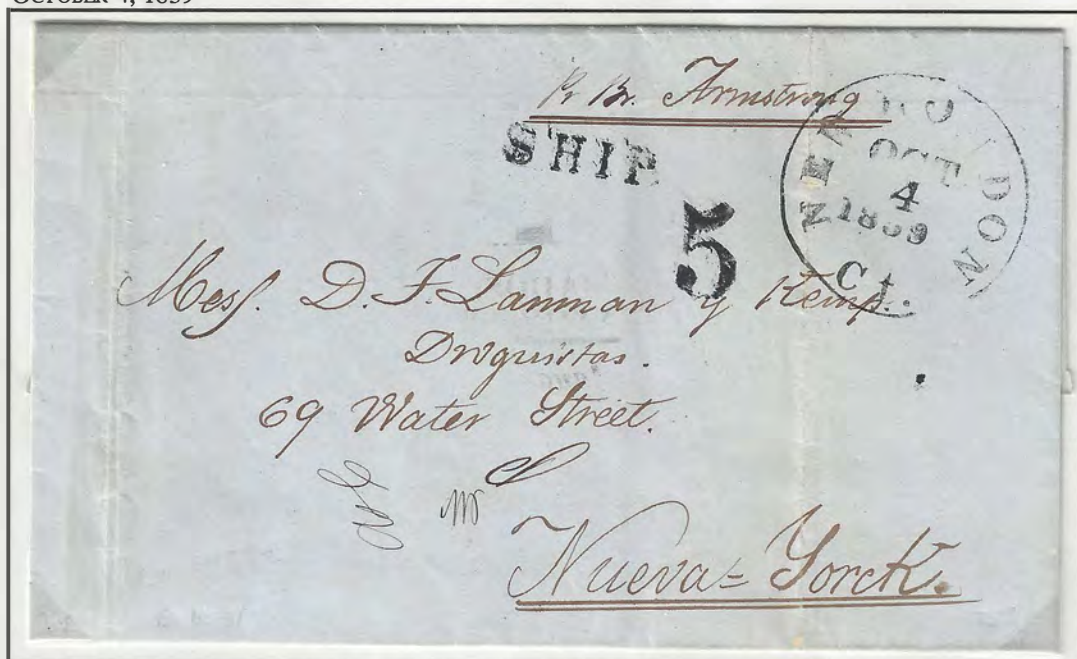 OCTOBER 4, 1859
Pr Br. Armstrong
SHIP
5
NEW LONDON
OCT
4
1859
Ct.
Mess. D. F. Lanman y Kemp.
Droguistas.
69 Water Street.
Nueva=Yorck.